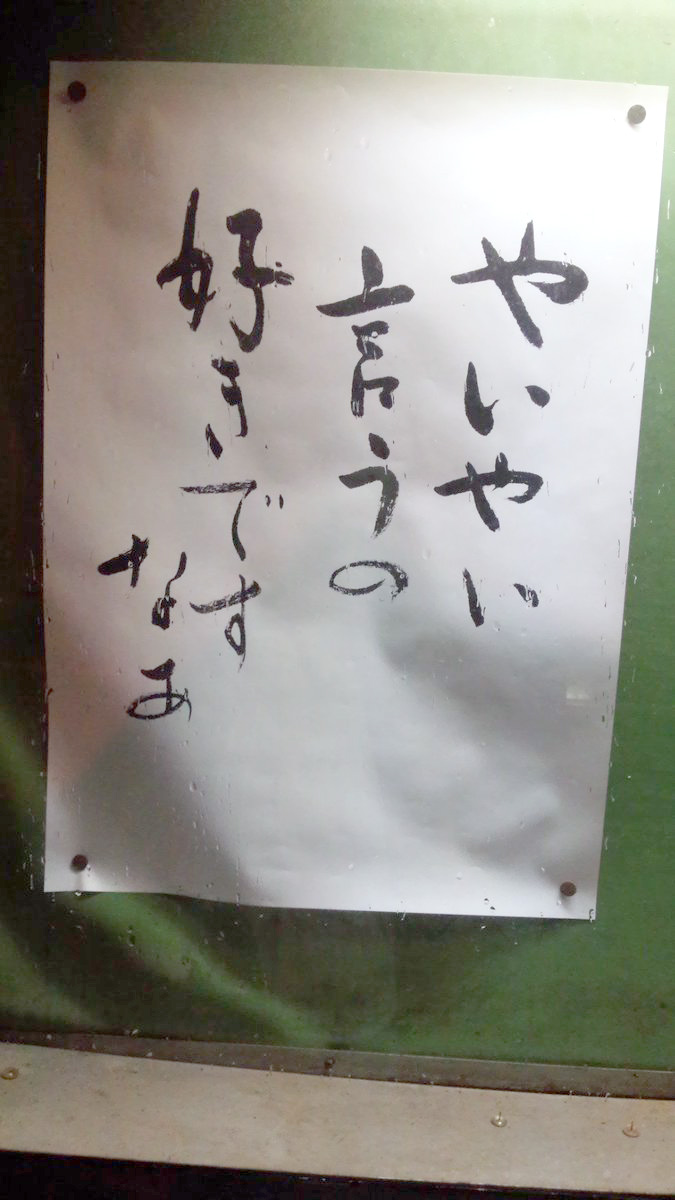 やいやい
言うの
好きです
なあ